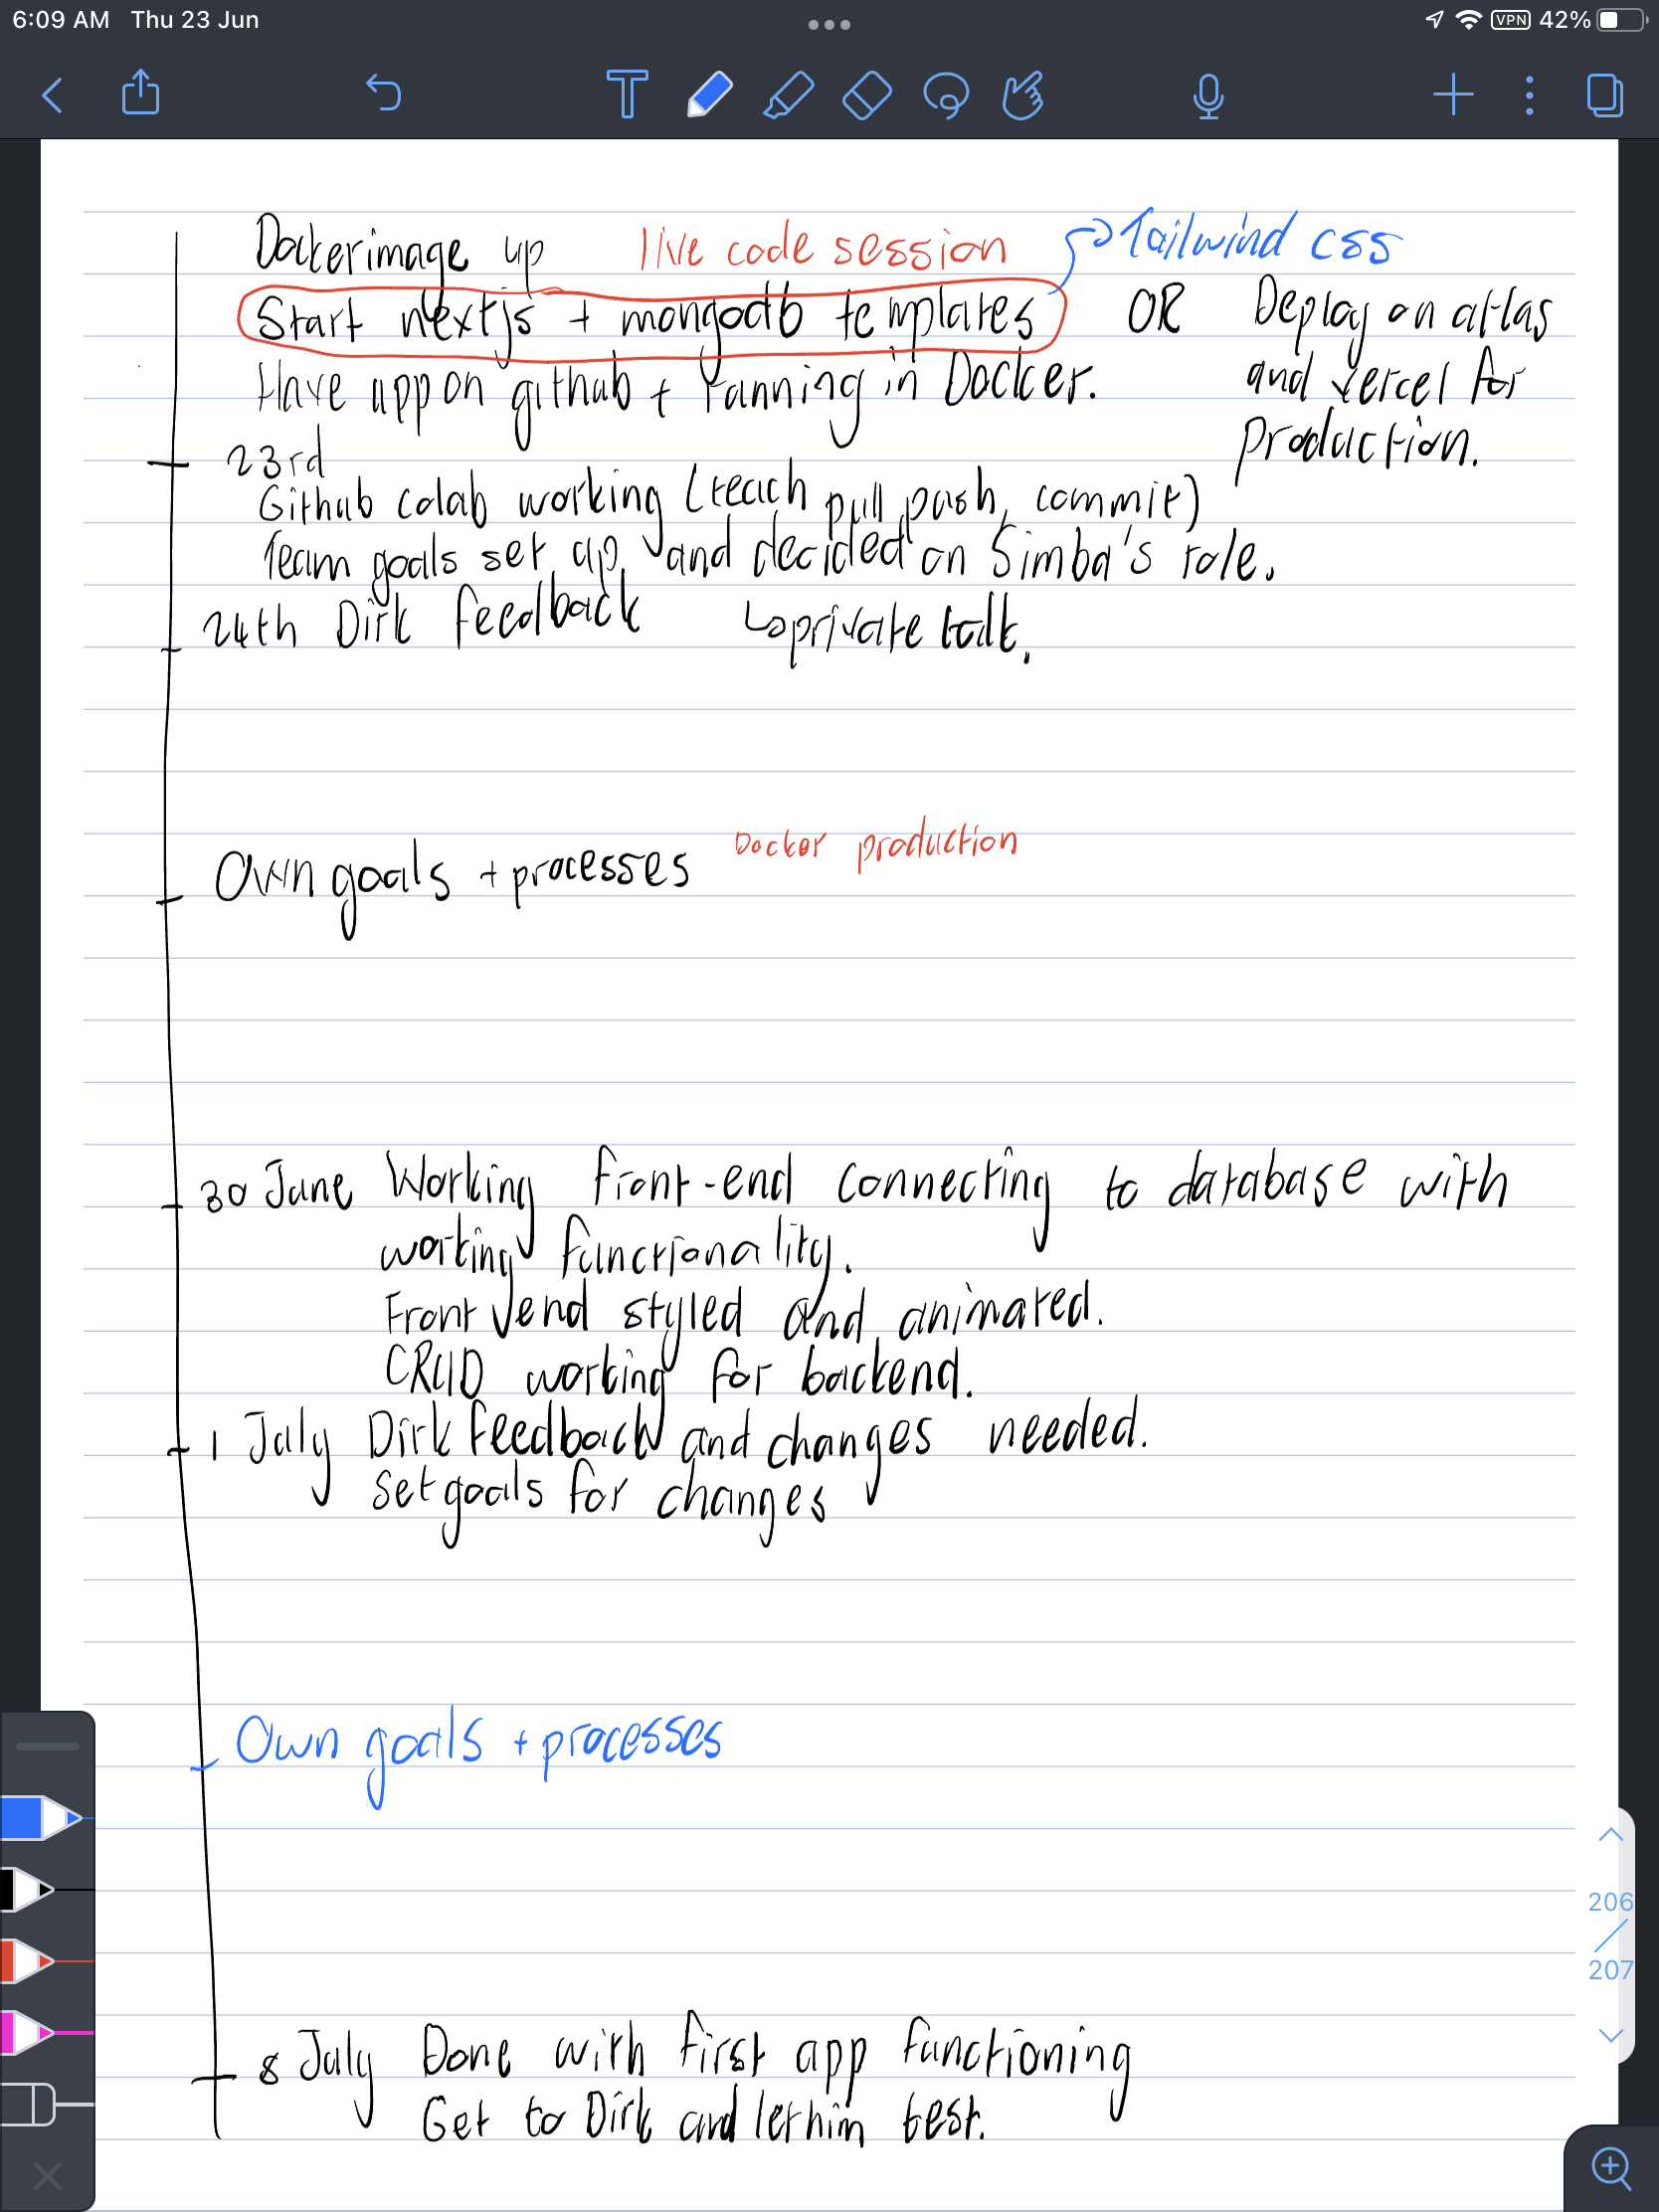 6:09 AM Thu 23 Jun
VPN 42%
Dockerimage up live code session Tailwind css
Start nextjs + mongodb templates OR Deploy on atlas
Have app on github + running in Docker. and vercel for
production.
23rd
Github colab working (teach pull, push, commit)
Team goals set up, and decided on Simba's role.
24th Dirk feedback private talk.
Docker production
Own goals + processes
30 June Working front-end connecting to database with
working functionality.
Front end styled and animated.
CRUD working for backend.
1 July Dirk feedback and changes needed.
Set goals for changes
Own goals + processes
206
207
8 July Done with first app functioning
Get to Dirk and let him test.